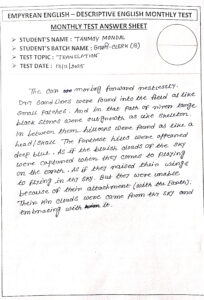 EMPYREAN ENGLISH – DESCRIPTIVE ENGLISH MONTHLY TEST
MONTHLY TEST ANSWER SHEET
➤ STUDENT'S NAME : TANMOY MONDAL
➤ STUDENT'S BATCH NAME : CLERK (B)
➤ TEST TOPIC : "TRANSLATION"
➤ TEST DATE :
The car moving forward restlessly.
Din Sand Lines were found into the field as like
small patches. And in that path of niron large
black stones were outgrowth as like skeleton.
In between them hillocks were found as like a
head/skull. The Paresnath hills were appeared
deep blue. As if the bluish clouds of the sky
were captured when they comes to playing
on the earth. As if they raised their wings
to flying in the sky. But they were unable
because of their attachment (with the Earth).
Then thin clouds were came from the sky and
embracing with it.